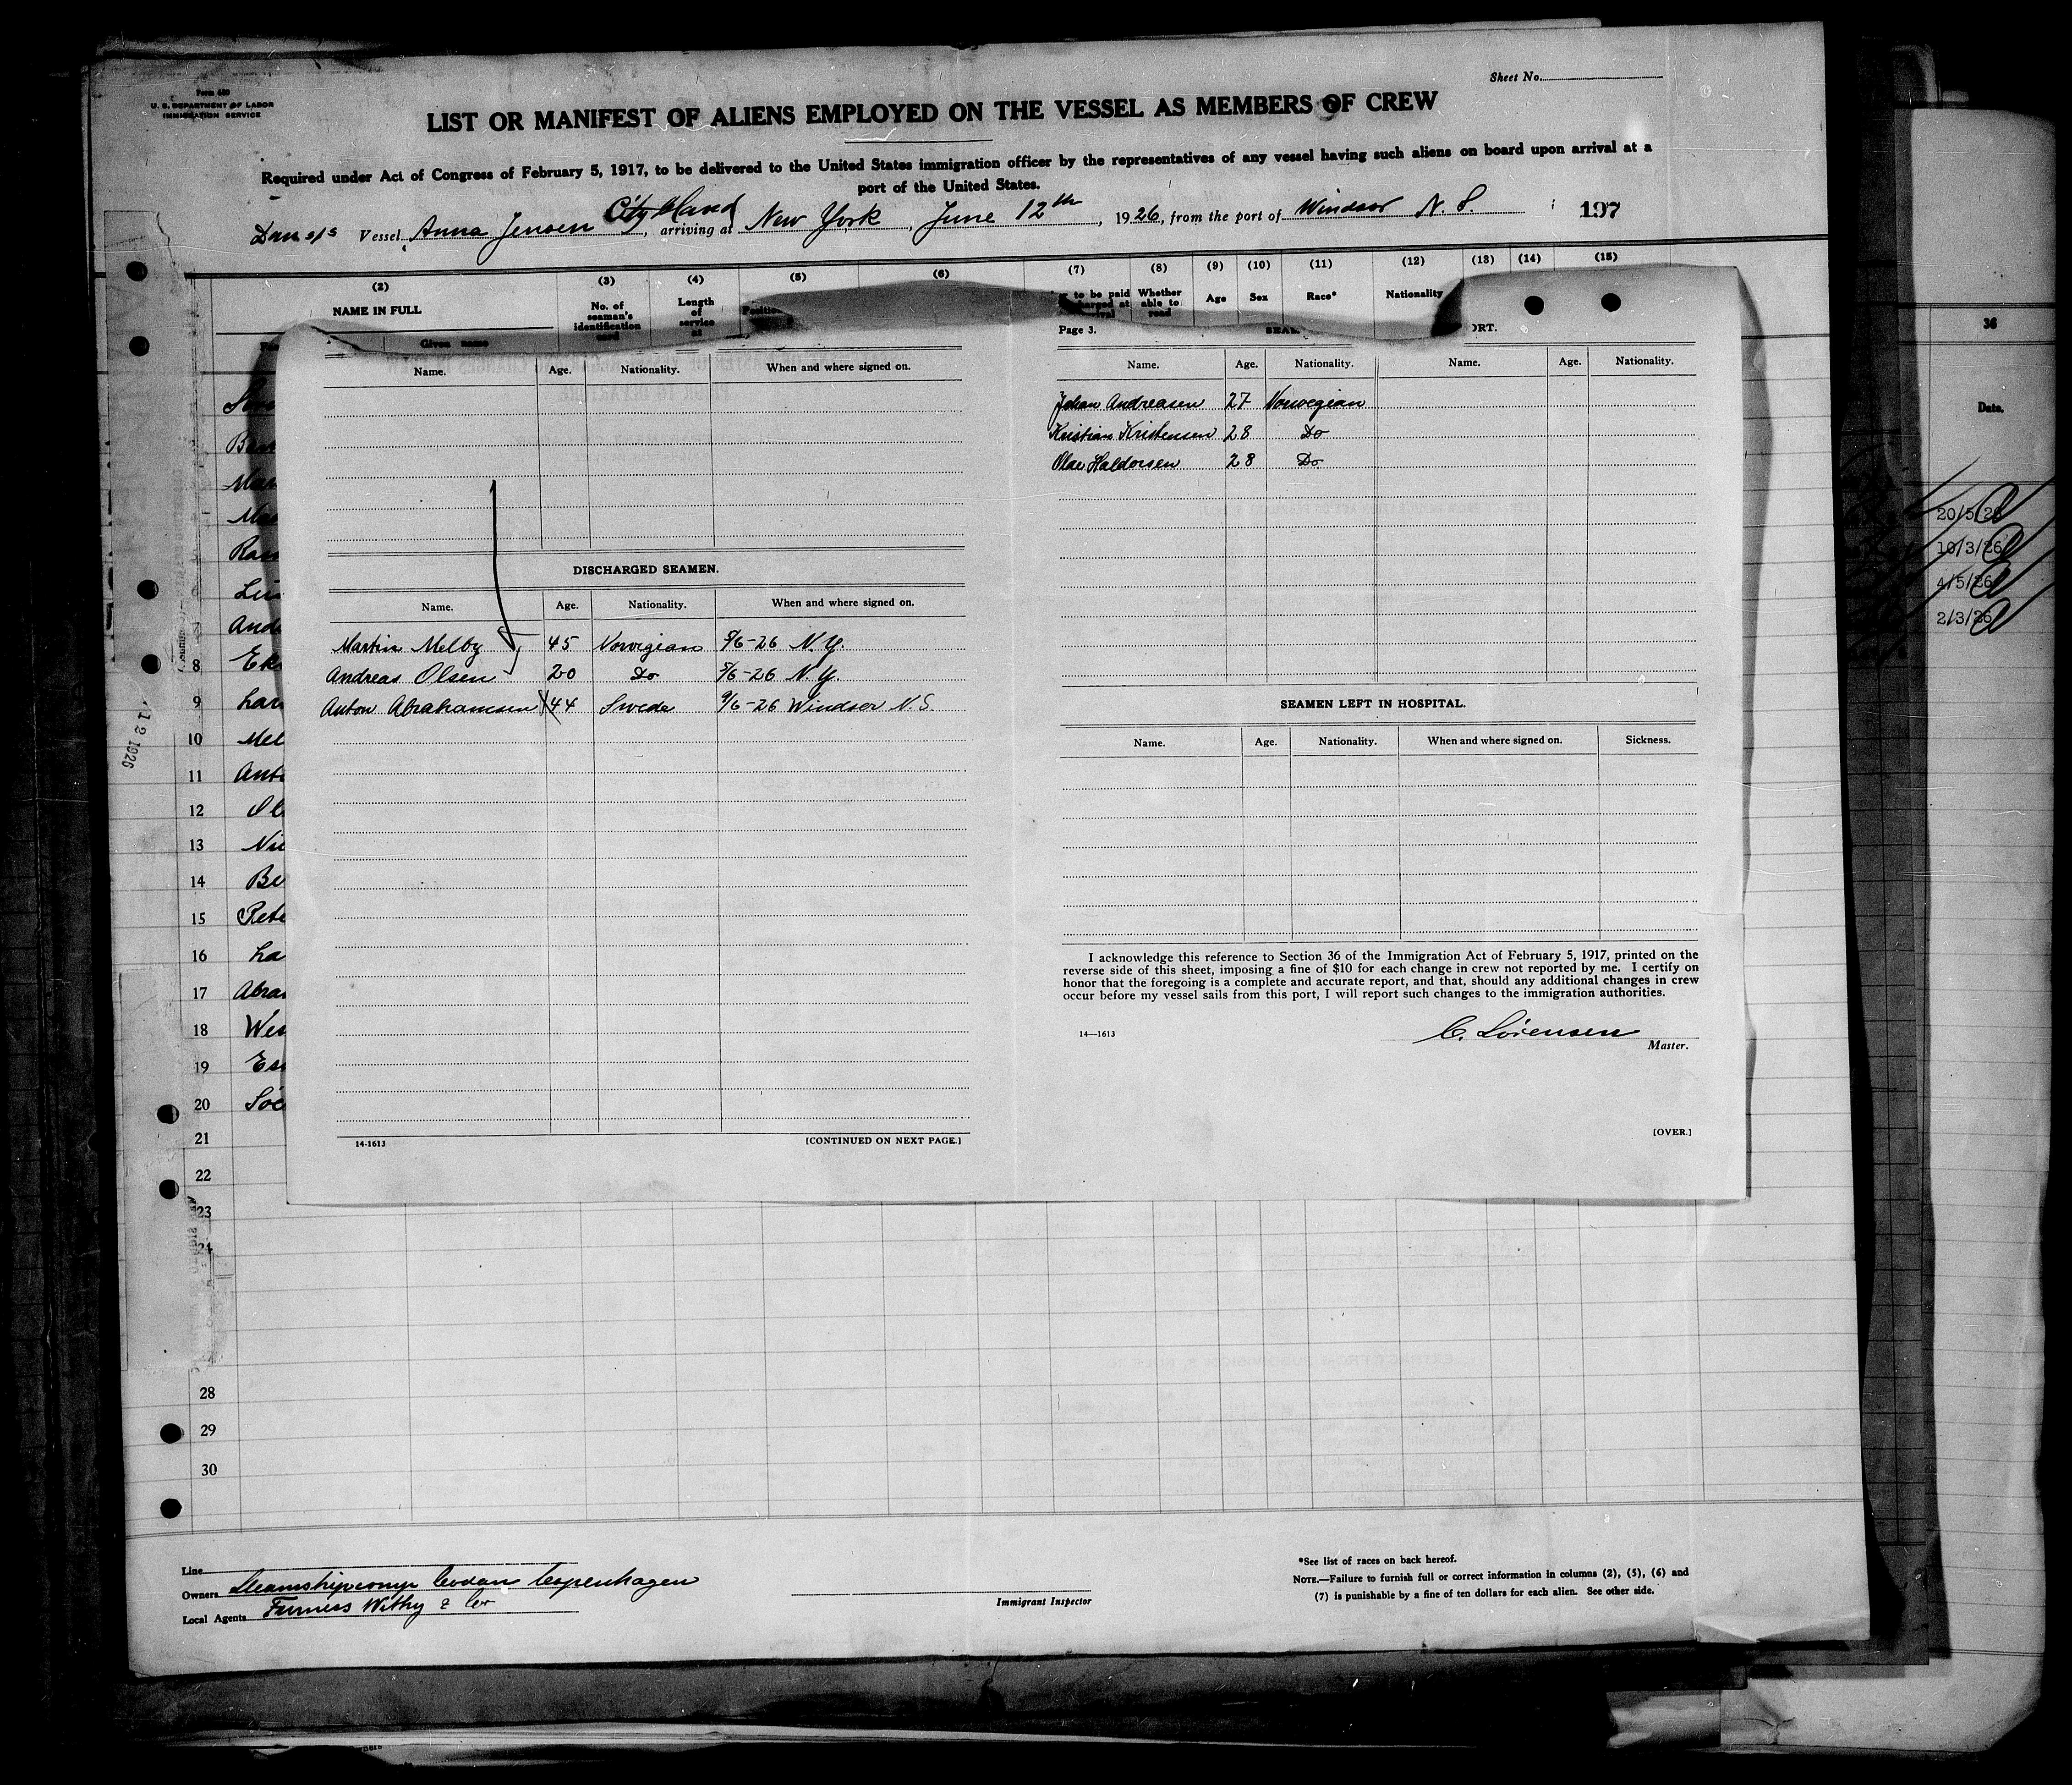 Form 680
U. S. DEPARTMENT OF LABOR
IMMIGRATION SERVICE
Sheet No.
LIST OR MANIFEST OF ALIENS EMPLOYED ON THE VESSEL AS MEMBERS OF CREW
Required under Act of Congress of February 5, 1917, to be delivered to the United States immigration officer by the representatives of any vessel having such aliens on board upon arrival at a
port of the United States.
Dan s/s Vessel Anna Jensen City Island, arriving at New York, June 12th, 1926, from the port of Windsor N. S. 197
(2) (3) (4) (5) (6) (7) (8) (9) (10) (11) (12) (13) (14) (15)
NAME IN FULL
No. of seaman's identification card
Length of service at
Positio
to be paid
Whether able to read
Age Sex Race* Nationality
Given name
Name. Age. Nationality. When and where signed on.
DISCHARGED SEAMEN.
Name. Age. Nationality. When and where signed on.
Martin Melby 45 Norvegian 5/6-26 N. Y.
Andreas Olsen 20 Do 5/6-26 N. Y.
Anton Abrahamsen 44 Swede 9/6-26 Windsor N. S.
14-1613 [CONTINUED ON NEXT PAGE.]
Page 3. ORT.
Name. Age. Nationality. Name. Age. Nationality.
Johan Andreasen 27 Norvegian
Kristian Kristensen 28 Do
Olav Haldorsen 28 Do
SEAMEN LEFT IN HOSPITAL.
Name. Age. Nationality. When and where signed on. Sickness.
I acknowledge this reference to Section 36 of the Immigration Act of February 5, 1917, printed on the
reverse side of this sheet, imposing a fine of $10 for each change in crew not reported by me. I certify on
honor that the foregoing is a complete and accurate report, and that, should any additional changes in crew
occur before my vessel sails from this port, I will report such changes to the immigration authorities.
14—1613 C. Sörensen
Master.
[OVER.]
8
9
10
11
12
13
14
15
16
17
18
19
20
21
22
23
24
28
29
30
Line
Owners Steamshipcomp Codan Copenhagen
Local Agents Furness Withy & Co
Immigrant Inspector
*See list of races on back hereof.
NOTE.—Failure to furnish full or correct information in columns (2), (5), (6) and
(7) is punishable by a fine of ten dollars for each alien. See other side.
36
Date.
20/5/26
10/3/26
4/5/26
2/3/26